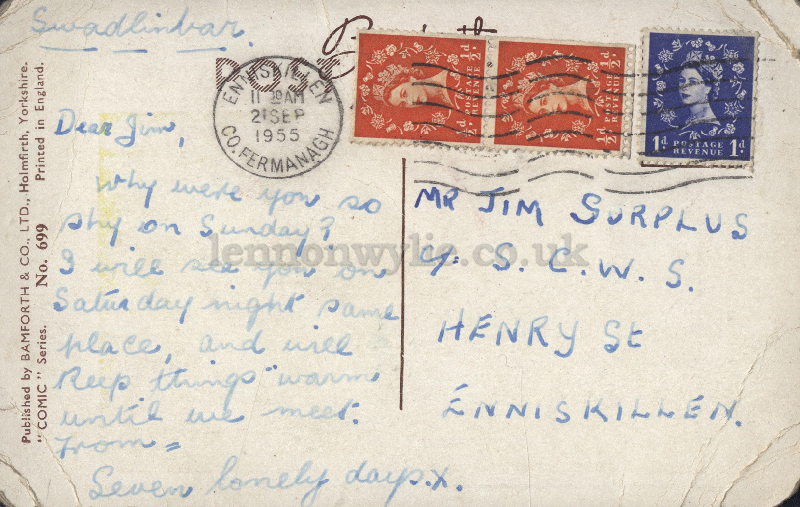 Swadlinbar.
POST
ENNISKILLEN
11 30AM
21 SEP
1955
CO. FERMANAGH
½d POSTAGE REVENUE ½d
½d POSTAGE REVENUE ½d
1d POSTAGE REVENUE 1d
Dear Jim,
Why were you so
shy on Sunday?
I will see you on
Saturday night same
place, and will
keep things "warm
until we meet.
From =
Seven lonely days.x.
MR JIM SURPLUS
c/o S. C. W. S.
HENRY St
ENNISKILLEN.
Published by BAMFORTH & CO., LTD., Holmfirth, Yorkshire.
"COMIC" Series. No. 699 Printed in England.
lennonwylie.co.uk